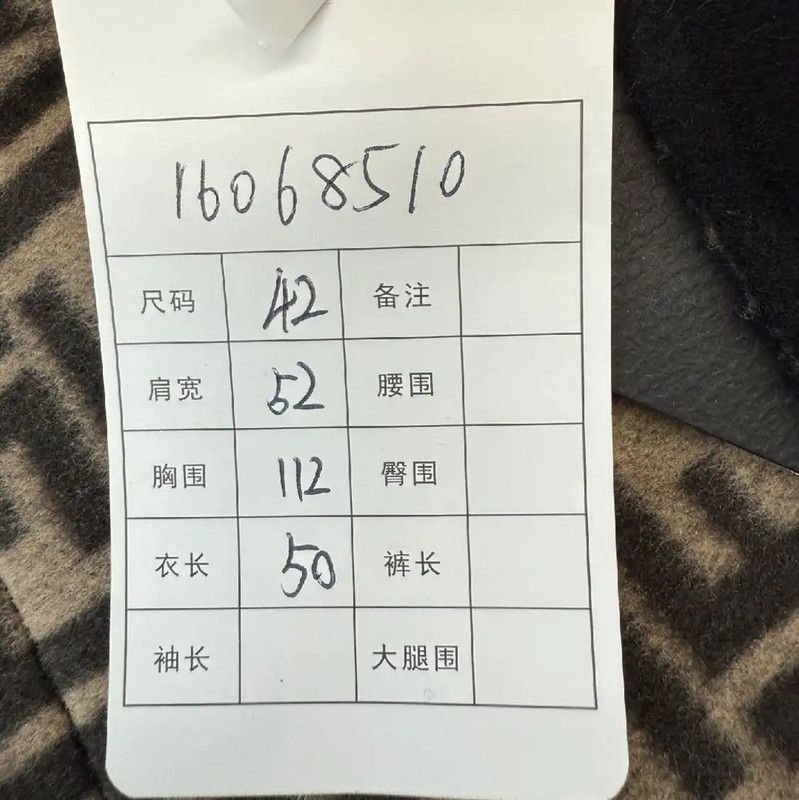 16068510
尺码 42 备注
肩宽 52 腰围
胸围 112 臀围
衣长 50 裤长
袖长 大腿围